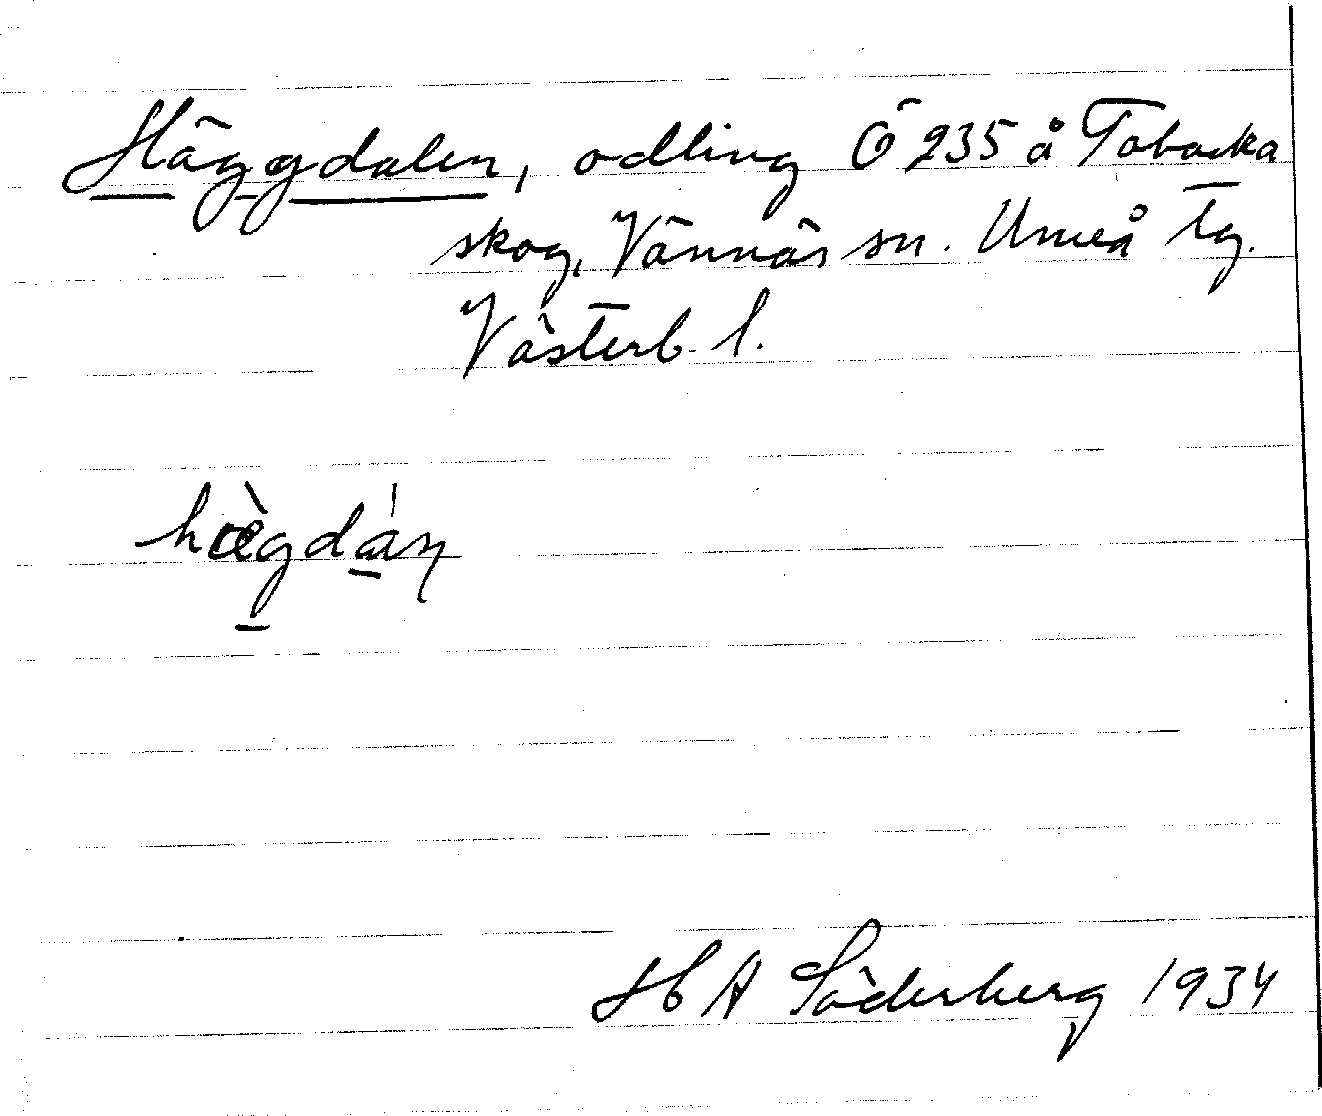 Häggdalen, odling Ö 235 å Tobacka
skog, Vännäs sn. Umeå Tg.
Västerb. l.
hæ̀gdáṉ
H A Söderberg 1934